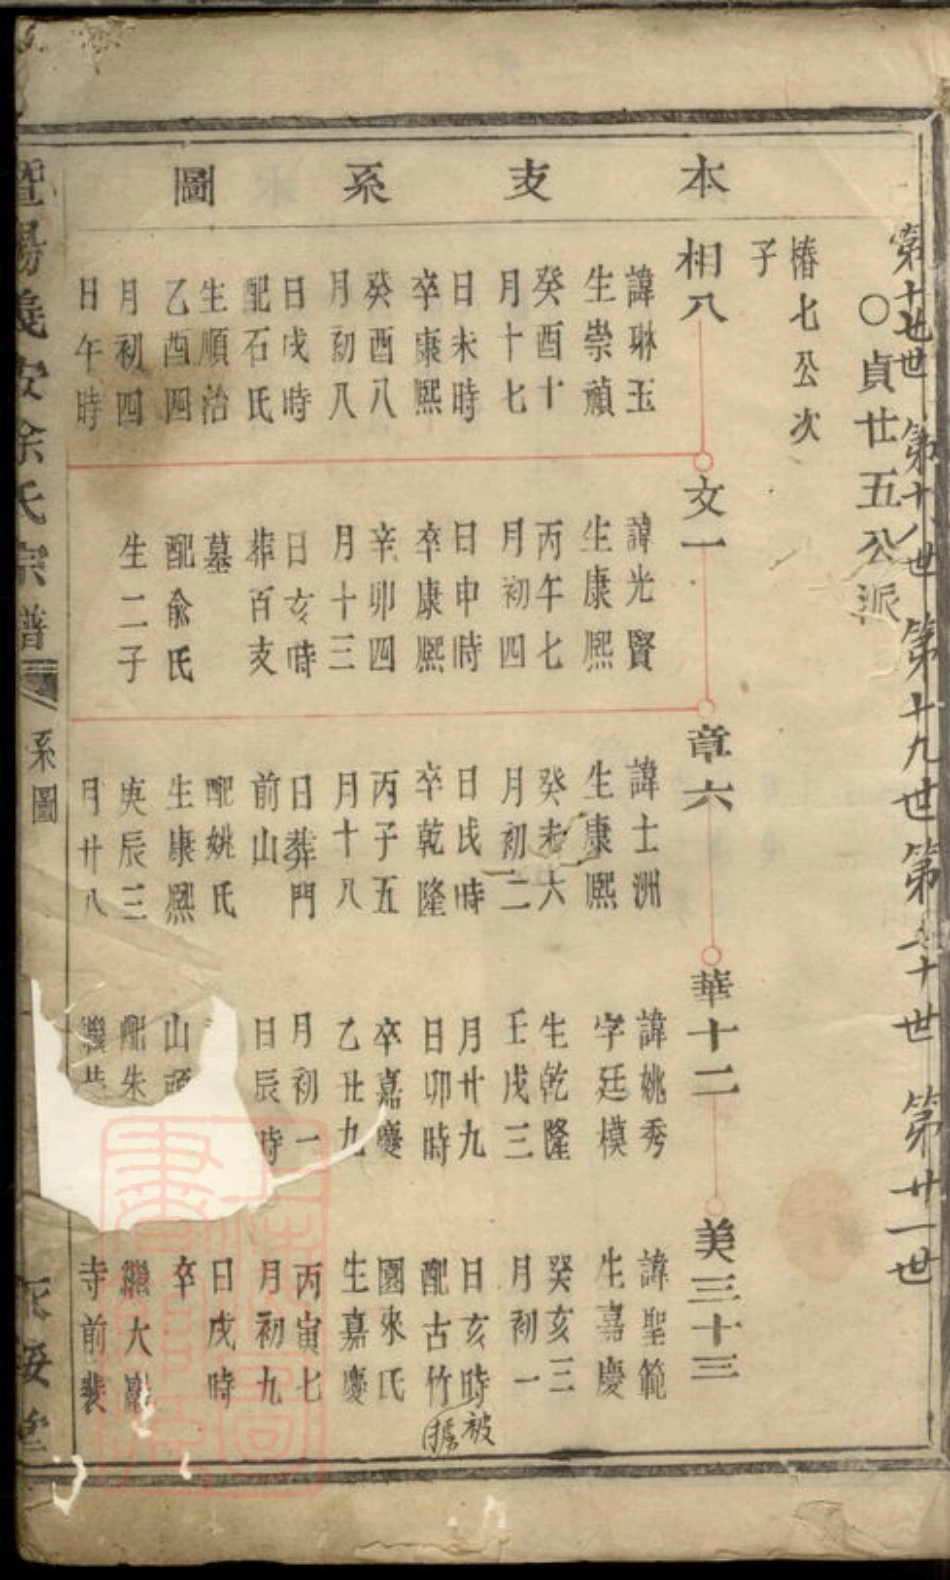 第十七世 第十八世 第十九世 第二十世 第廿一世
○貞廿五公派
椿七公次
子
本支系圖
相八
諱琳玉
生崇禎
癸酉十
月十七
日未時
卒康熙
癸酉八
月初八
日戌時
配石氏
生順治
乙酉四
月初四
日午時
文一
諱光賢
生康熙
丙午七
月初四
日申時
卒康熙
辛卯四
月十三
日亥時
葬百支
墓
配俞氏
生二子
章六
諱士洲
生康熙
癸未六
月初二
日氏時
卒乾隆
丙子五
月十八
日葬門
前山
配姚氏
生康熙
庚辰三
月廿八
華十二
諱姚秀
字廷模
生乾隆
壬戌三
月廿九
日卯時
卒嘉慶
乙丑九
月初一
日辰時
山
配朱
美三十三
諱聖範
生嘉慶
癸亥三
月初一
日亥時
被
配古竹
擄
園來氏
生嘉慶
丙寅七
月初九
日戌時
卒
大
寺前裴
暨陽義安余氏宗譜
系圖